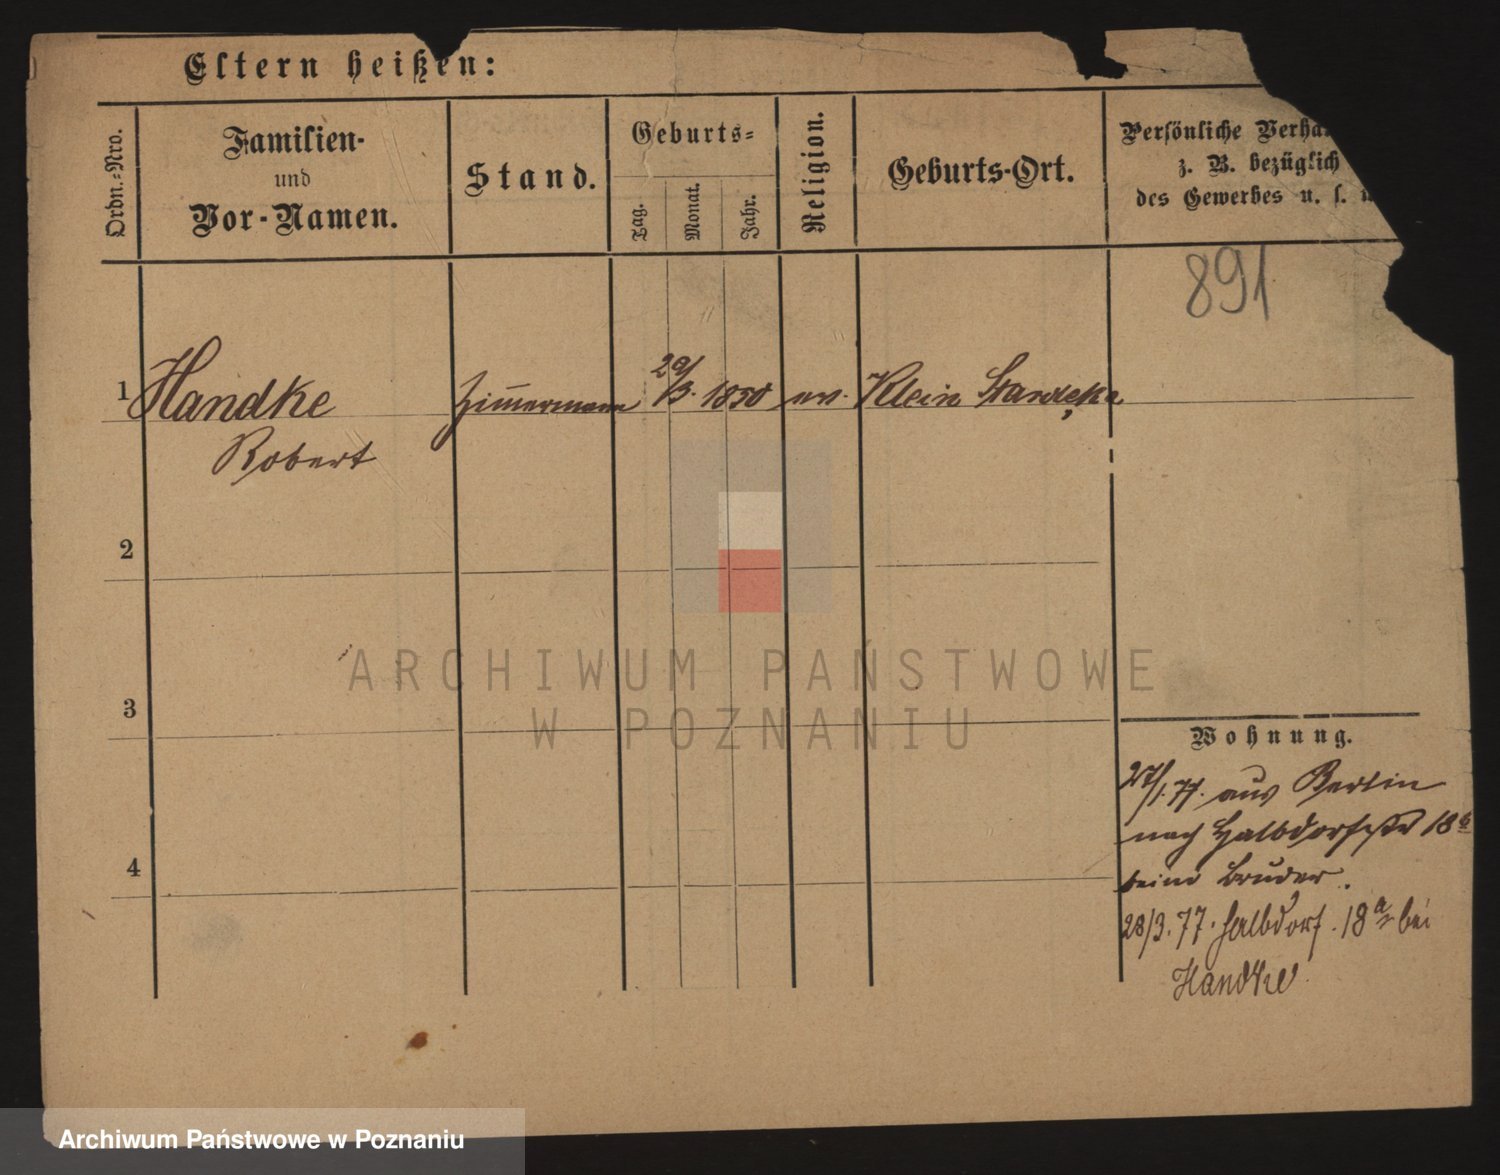 Eltern heißen:
Ordn.-Nro.
Familien-
und
Vor-Namen.
Stand.
Geburts-
Tag.
Monat.
Jahr.
Religion.
Geburts-Ort.
Persönliche
z. B. bezüglich
des Gewerbes u. s.
891
1 Handke Zimmermann 29/3. 1850 ev. Klein
Robert
2
3
4
Wohnung.
27/1. 77. aus Berlin
nach Halbdorfstr 18b
beim Bruder.
28/3. 77. Halbdorf. 18a bei
Handke
ARCHIWUM PAŃSTWOWE
W POZNANIU
Archiwum Państwowe w Poznaniu